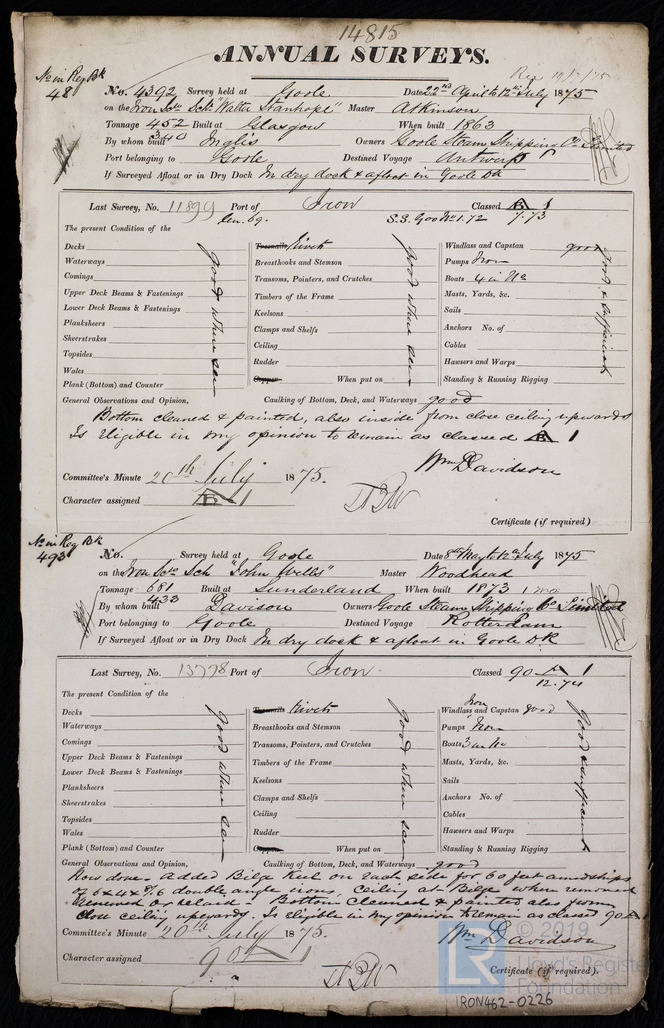 14815
ANNUAL SURVEYS.
No in Reg Bk
48
No. 4392 Survey held at Goole Date 22nd April to 12th July 1875
on the Iron Scw Schr "Walter Stanhope" Master Atkinson
Tonnage 452 Built at Glasgow When built 1863
340
By whom built Inglis Owners Goole Steam Shipping Co Limited
Port belonging to Goole Destined Voyage Antwerp
If Surveyed Afloat or in Dry Dock In dry dock & afloat in Goole Dk
Last Survey, No. 11899 Port of Iron Classed B 1
S.S. Goo No 1.72 7.73
The present Condition of the
Decks Treenails Rivets Windlass and Capstan good
Waterways Breasthooks and Stemson Pumps Iron
Comings Transoms, Pointers, and Crutches Boats 4 in No
Upper Deck Beams & Fastenings Timbers of the Frame Masts, Yards, &c.
Lower Deck Beams & Fastenings Keelsons Sails
Planksheers Clamps and Shelfs Anchors No. of
Sheerstrakes Ceiling Cables
Topsides Rudder Hawsers and Warps
Wales Copper When put on Standing & Running Rigging
Plank (Bottom) and Counter
good where seen
good where seen
good & sufficient
General Observations and Opinion, Caulking of Bottom, Deck, and Waterways good
Bottom cleaned & painted, also inside from close ceiling upwards
Is eligible in my opinion to remain as classed B 1
Wm Davidson
Committee's Minute 20th July 1875.
Character assigned B 1
Certificate (if required)
No in Reg Bk
493
No. Survey held at Goole Date 8th May to 12th July 1875
on the Iron Scw Sch "John Wells" Master Woodhead
Tonnage 681 Built at Sunderland When built 1873 1 mo
433
By whom built Davison Owners Goole Steam Shipping Co Limited
Port belonging to Goole Destined Voyage Rotterdam
If Surveyed Afloat or in Dry Dock In dry dock & afloat in Goole Dk
Last Survey, No. 13778 Port of Iron Classed 90 A 1
12.74
The present Condition of the
Decks Treenails Rivets Windlass and Capstan good
Iron
Waterways Breasthooks and Stemson Pumps Iron
Comings Transoms, Pointers, and Crutches Boats 3 in No
Upper Deck Beams & Fastenings Timbers of the Frame Masts, Yards, &c.
Lower Deck Beams & Fastenings Keelsons Sails
Planksheers Clamps and Shelfs Anchors No. of
Sheerstrakes Ceiling Cables
Topsides Rudder Hawsers and Warps
Wales Copper When put on Standing & Running Rigging
Plank (Bottom) and Counter
good where seen
good where seen
good & sufficient
General Observations and Opinion, Caulking of Bottom, Deck, and Waterways good
Now done. Added Bilge Keel on each side for 60 feet amidships
of 6 x 4 x 7/16 double angle irons, Ceiling at Bilge where removed
renewed or relaid - Bottom Cleaned & painted also from
close ceiling upwards. Is eligible in my opinion to remain as classed 90 A 1
Wm Davidson
Committee's Minute 20th July 1875.
Character assigned 90 A 1
Certificate (if required).
LR © 2019
Lloyd's Register
Foundation
IRON462-0226